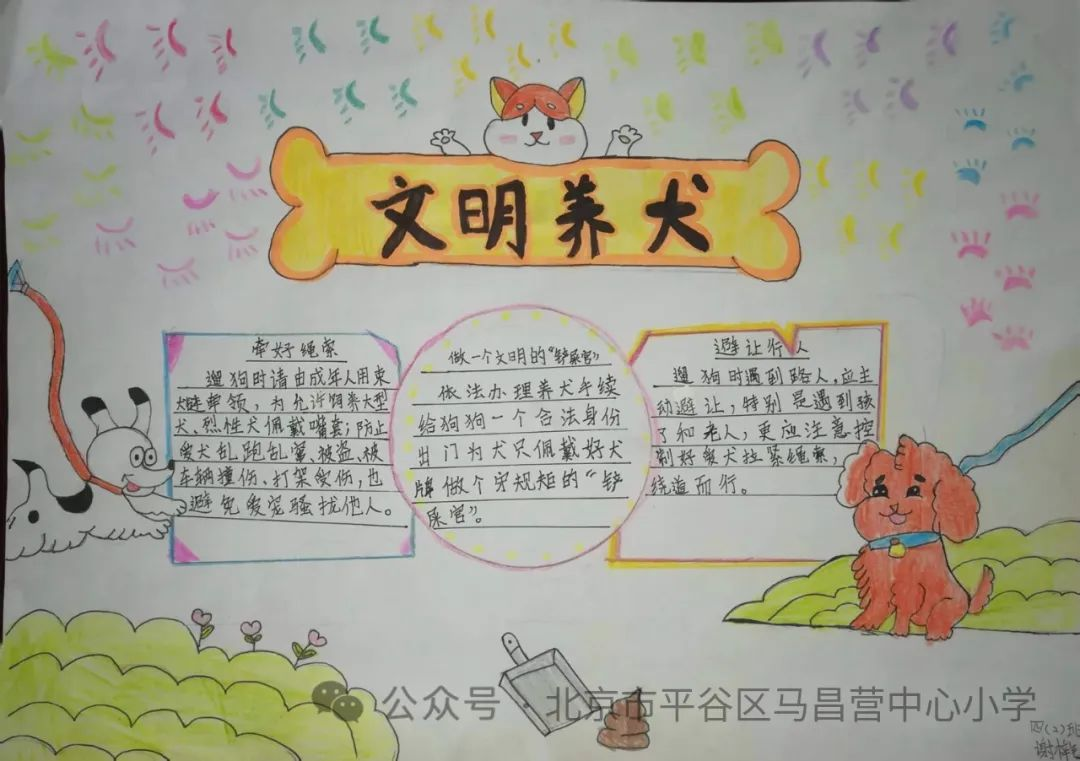 文明养犬
牵好绳索
遛狗时请由成年人用束
犬链牵领，为允许饲养大型
犬、烈性犬佩戴嘴套；防止
爱犬乱跑乱窜、被盗、被
车辆撞伤、打架受伤，也
避免爱宠骚扰他人。
做一个文明的“铲屎官”
依法办理养犬手续
给狗狗一个合法身份
出门为犬只佩戴好犬
牌做个守规矩的“铲
屎官”。
避让行人
遛狗时遇到路人，应主
动避让，特别是遇到孩
子和老人，更应注意控
制好爱犬拉紧绳索，
绕道而行。
公众号·北京市平谷区马昌营中心小学
四(2)班
谢梓